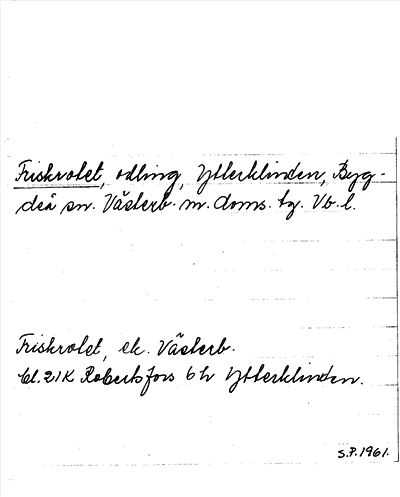 Friskvolet, odling, Ytterklinten, Byg-
deå sn. Västerb. m. doms. tg. Vb. l.
Friskvolet, ek. Västerb.
bl. 21K Robertsfors 6 h Ytterklinten.
S.P. 1961.